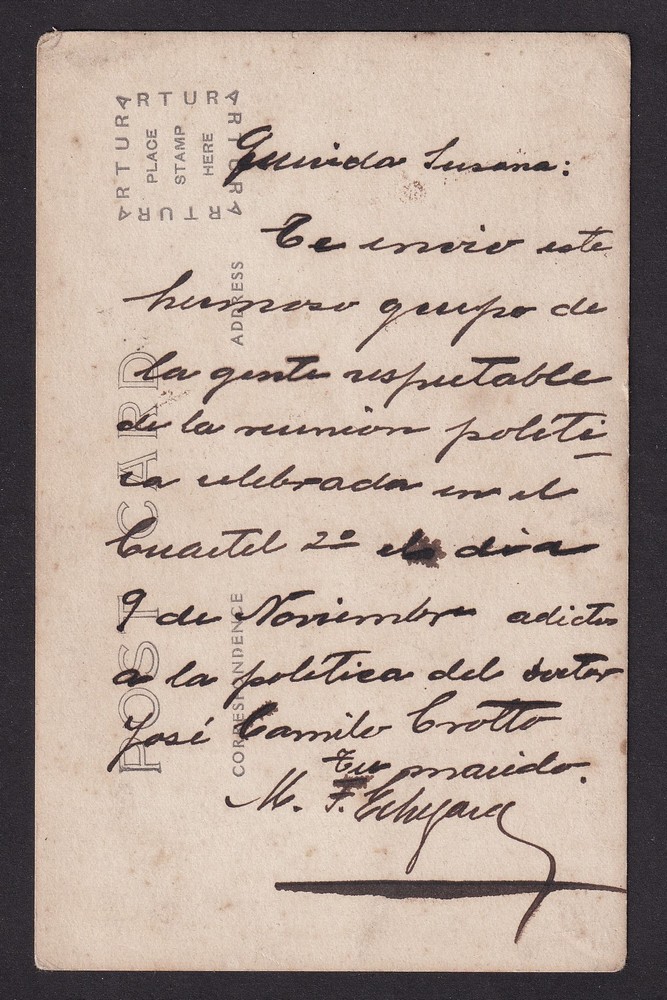 ARTURA
ARTURA
ARTURA
ARTURA
PLACE
STAMP
HERE
POST CARD
ADDRESS
CORRESPONDENCE
Querida Susana:
Te envio este
hermoso grupo de
la gente respetable
de la reunion politi-
ca celebrada en el
Cuartel 2º el dia
9 de Noviembre adictos
a la politica del doctor
José Camilo Crotto
Tu marido.
M. F.